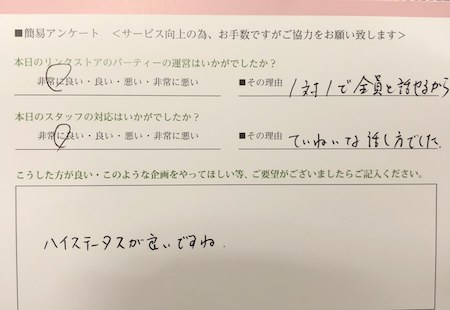 ■簡易アンケート ＜サービス向上の為、お手数ですがご協力をお願い致します＞
本日のリンクストアのパーティーの運営はいかがでしたか？
非常に良い・良い・悪い・非常に悪い ■その理由 1対1で全員と話せるから
本日のスタッフの対応はいかがでしたか？
非常に良い・良い・悪い・非常に悪い ■その理由 ていねいな話し方でした
こうした方が良い・このような企画をやってほしい等、ご要望がございましたらご記入ください。
ハイステータスが良いですね.